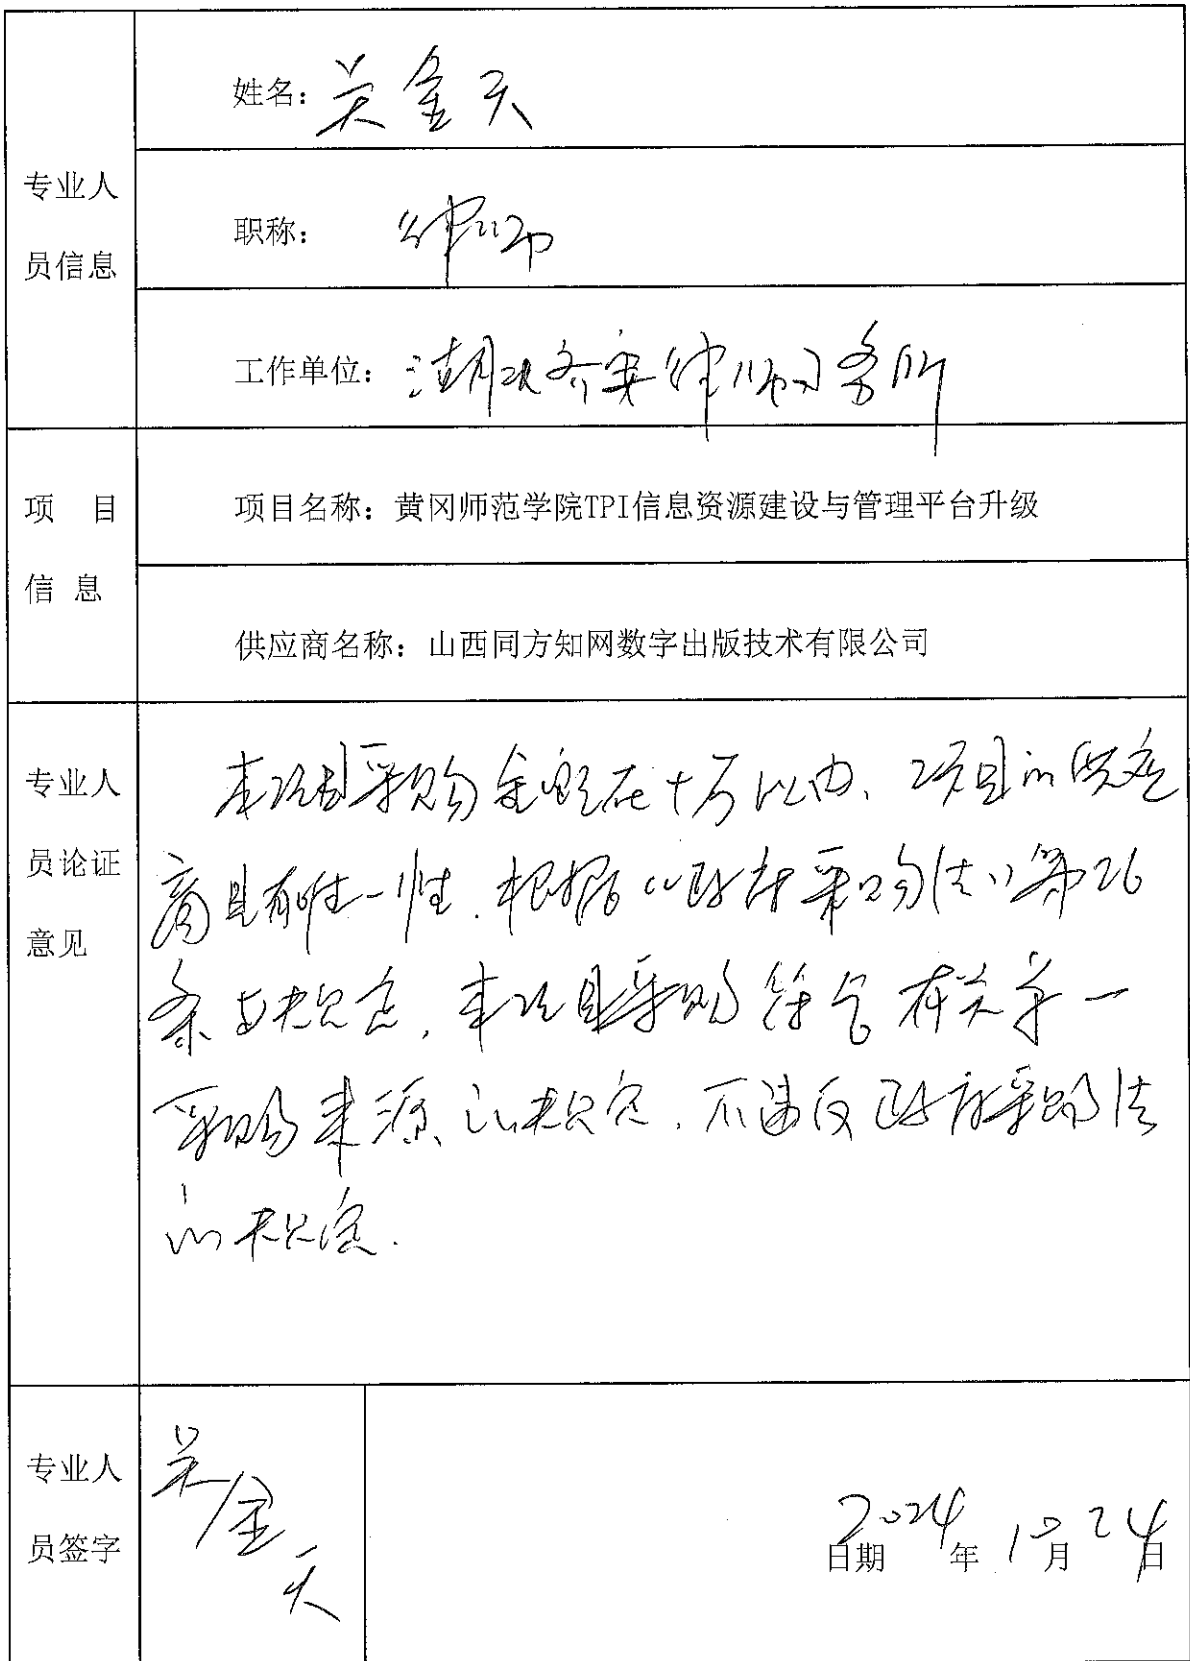 专业人
员信息
姓名：吴金天
职称：律师
工作单位：湖北齐安律师事务所
项 目
信 息
项目名称：黄冈师范学院TPI信息资源建设与管理平台升级
供应商名称：山西同方知网数字出版技术有限公司
专业人
员论证
意见
本项目采购金额在十万以内、项目的供应
商具有唯一性.根据《政府采购法》第26
条的规定，本项目采购符合有关单一
采购来源的规定.不违反政府采购法
的规定.
专业人
员签字
吴金天
日期2024年10月24日